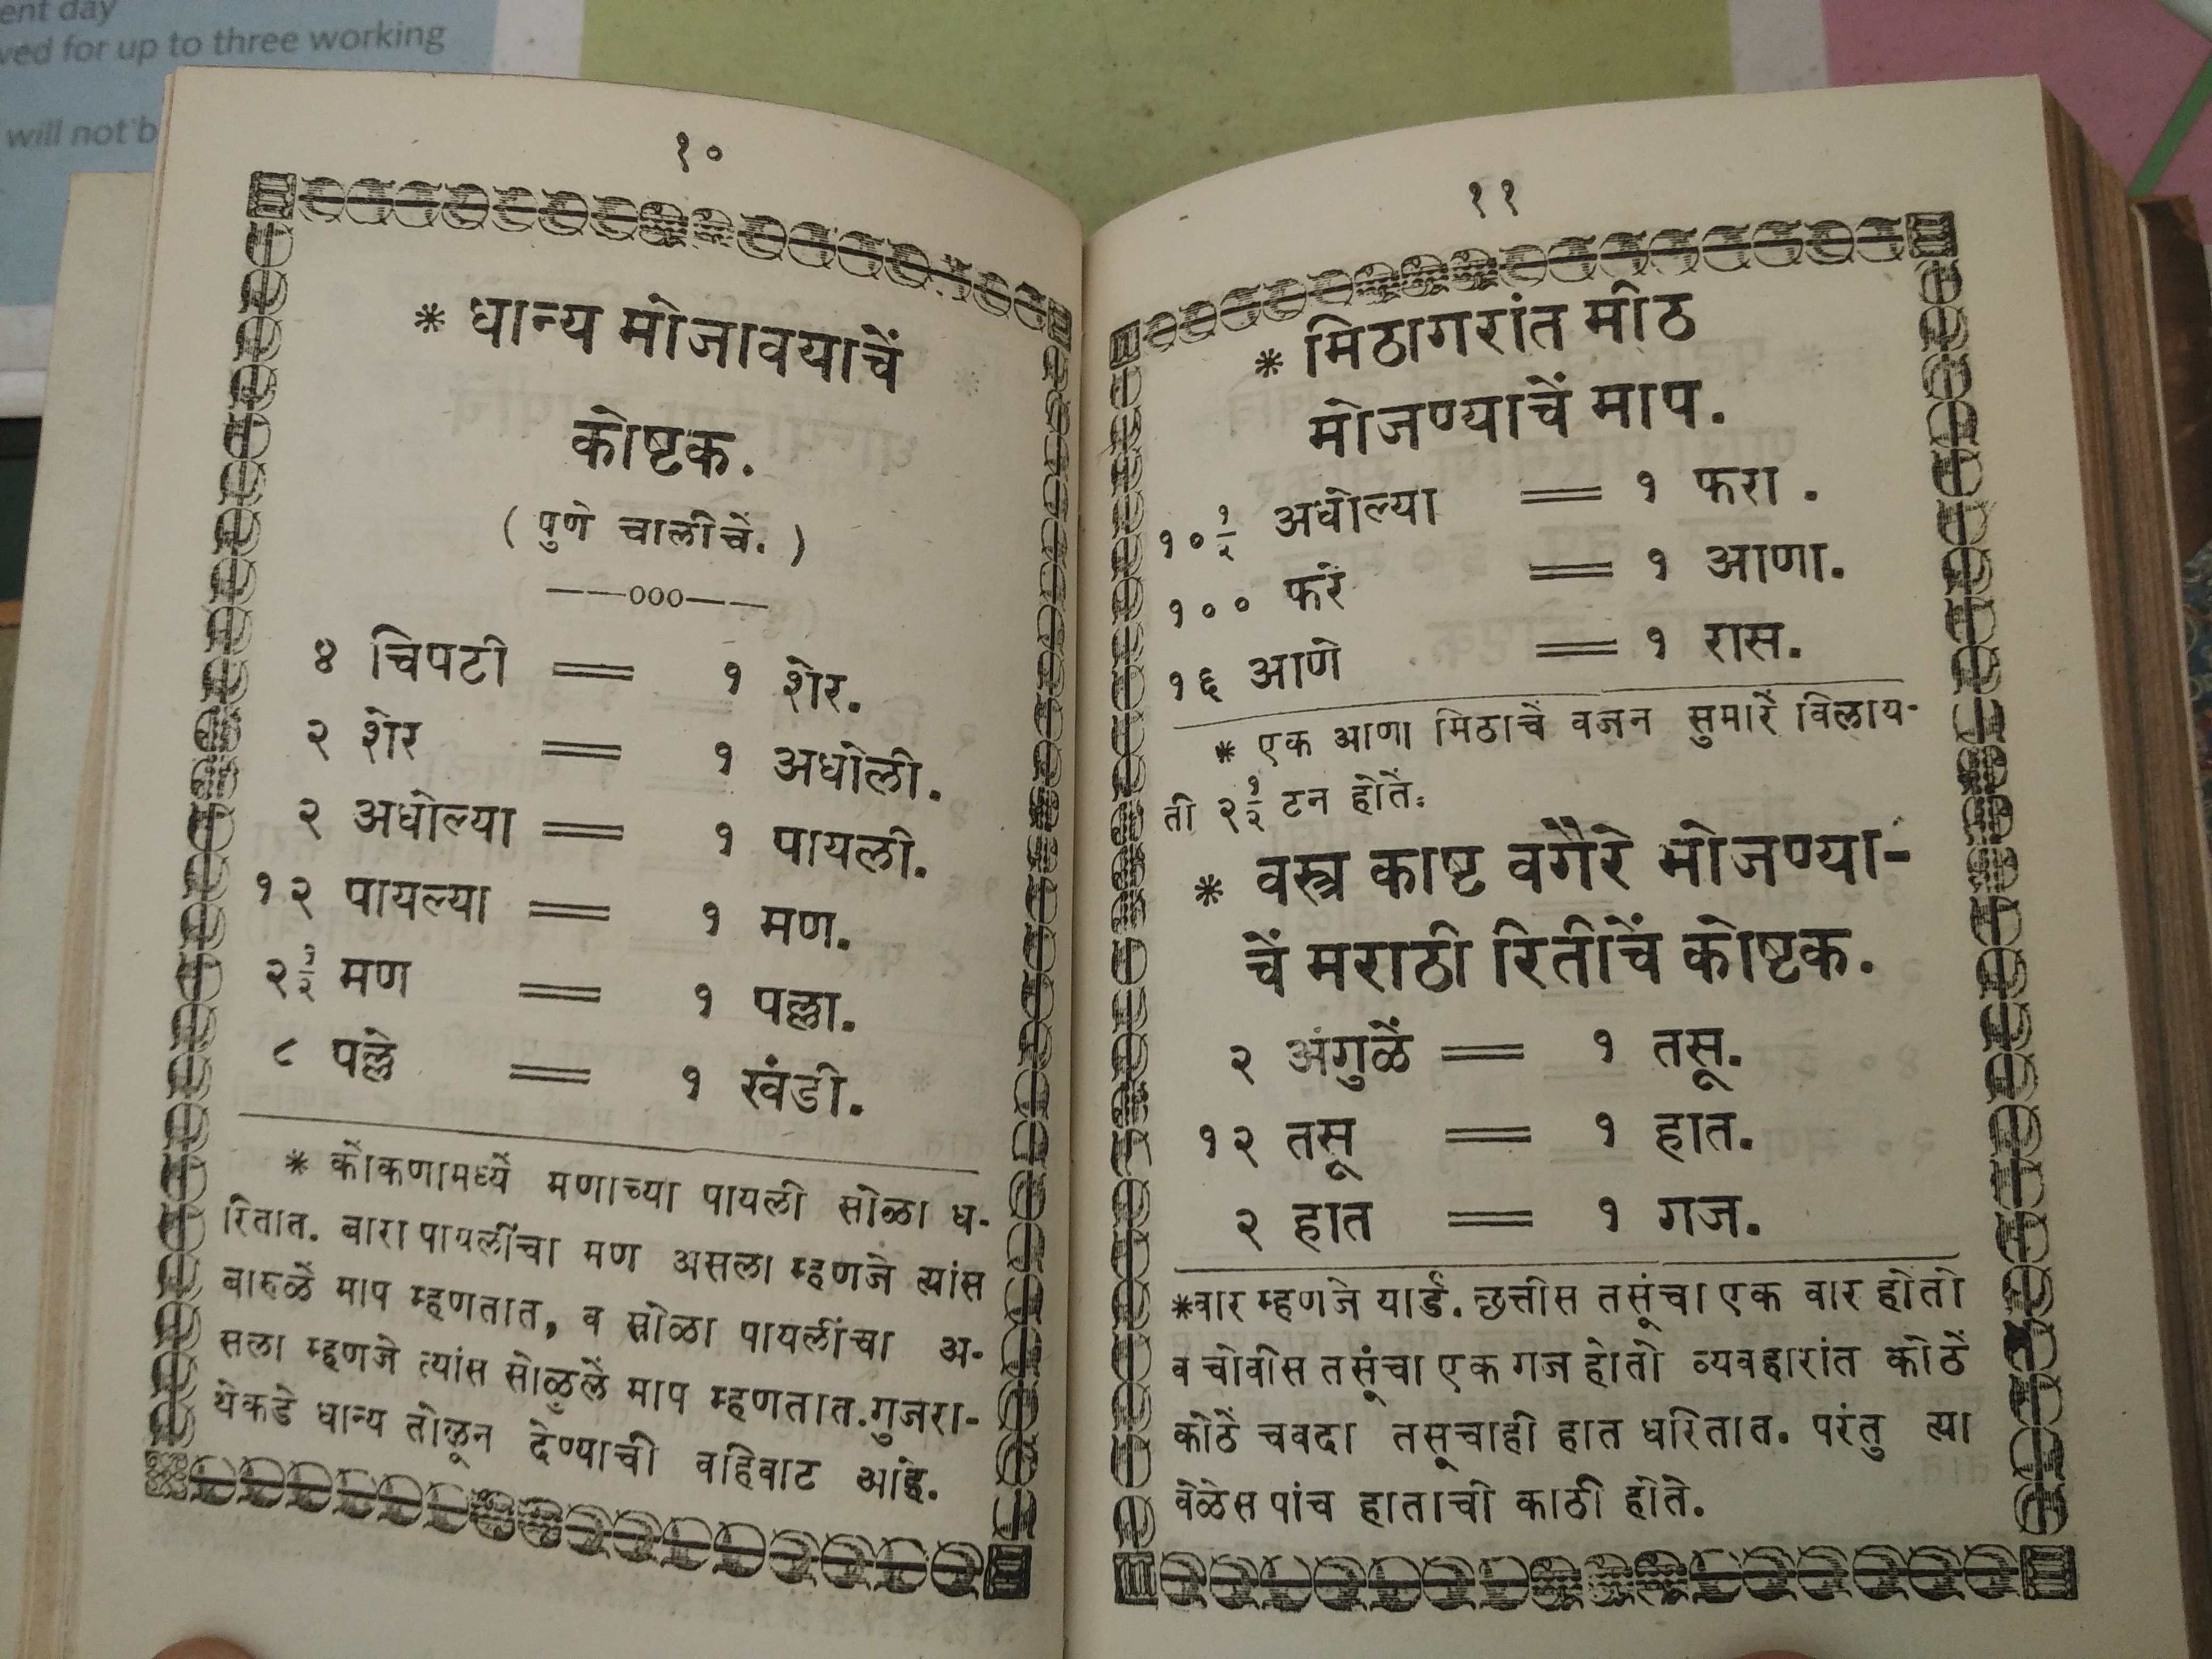 ent day
ved for up to three working
will not b
१०
* धान्य मोजावयाचें
कोष्टक.
( पुणे चालीचें. )
——000——
४ चिपटी = १ शेर.
२ शेर = १ अधोली.
२ अधोल्या = १ पायली.
१२ पायल्या = १ मण.
२ १/२ मण = १ पल्ला.
८ पल्ले = १ खंडी.
* कोकणामध्यें मणाच्या पायली सोळा ध-
रितात. बारा पायलींचा मण असला म्हणजे त्यांस
बारुळें माप म्हणतात, व सोळा पायलींचा अ-
सला म्हणजे त्यांस सोळुलें माप म्हणतात.गुजरा-
थेकडे धान्य तोळून देण्याची वहिवाट आहे.
११
* मिठागरांत मीठ
मोजण्याचें माप.
१० १/२ अधोल्या = १ फरा .
१०० फरे = १ आणा.
१६ आणे = १ रास.
* एक आणा मिठाचें वजन सुमारें विलाय-
ती २ १/२ टन होतें.
* वस्त्र काष्ट वगैरे मोजण्या-
चें मराठी रितीचें कोष्टक.
२ अंगुळें = १ तसू.
१२ तसू = १ हात.
२ हात = १ गज.
*वार म्हणजे यार्ड. छत्तीस तसूंचा एक वार होतो
व चोवीस तसूंचा एक गज होतो व्यवहारांत कोठें
कोठें चवदा तसूचाही हात धरितात. परंतु त्या
वेळेस पांच हाताची काठी होते.